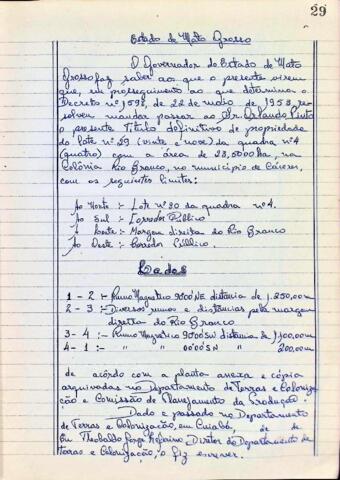 29
Estado de Mato Grosso
O Governador do Estado de Mato
Grosso faz saber ao que o presente virem
que, em prosseguimento ao que determina o
Decreto nº 1598, de 22 de maio de 1953, re-
solveu mandar passar ao Sr. Orlando Pinto
o presente Titulo definitivo de propriedade
do lote nº 29 (vinte e nove) da quadra nº 4
(quatro) com a área de 23,5000 ha, na
Colônia Rio Branco, no município de Cáceres,
com os seguintes limites:
Ao Norte :- Lote nº 30 da quadra nº 4.
Ao Sul :- Corredor Público
Ao Leste :- Margem direita do Rio Branco
Ao Oeste :- Corredor Público.
Lados
1 - 2 :- Rumo Magnetico 90º00'NE distancia de 1.250,00m
2 - 3 :- Diversos rumos e distâncias pela margem
direita do Rio Branco
3 - 4 :- Rumo Magnetico 90º00'SW distancia de 1,100,00m
4 - 1 :- " " 00º00'SN " 200,00m
de acôrdo com a planta anexa e cópia
arquivadas no Departamento de Terras e Coloniza-
ção e Comissão de Planejamento da Produção.
Dado e passado no Departamento
de Terras e Colonização, em Cuiabá, de de
Eu Theobaldo Jorge Diretor do Departamento de
terras e Colonização, o fiz escrever.